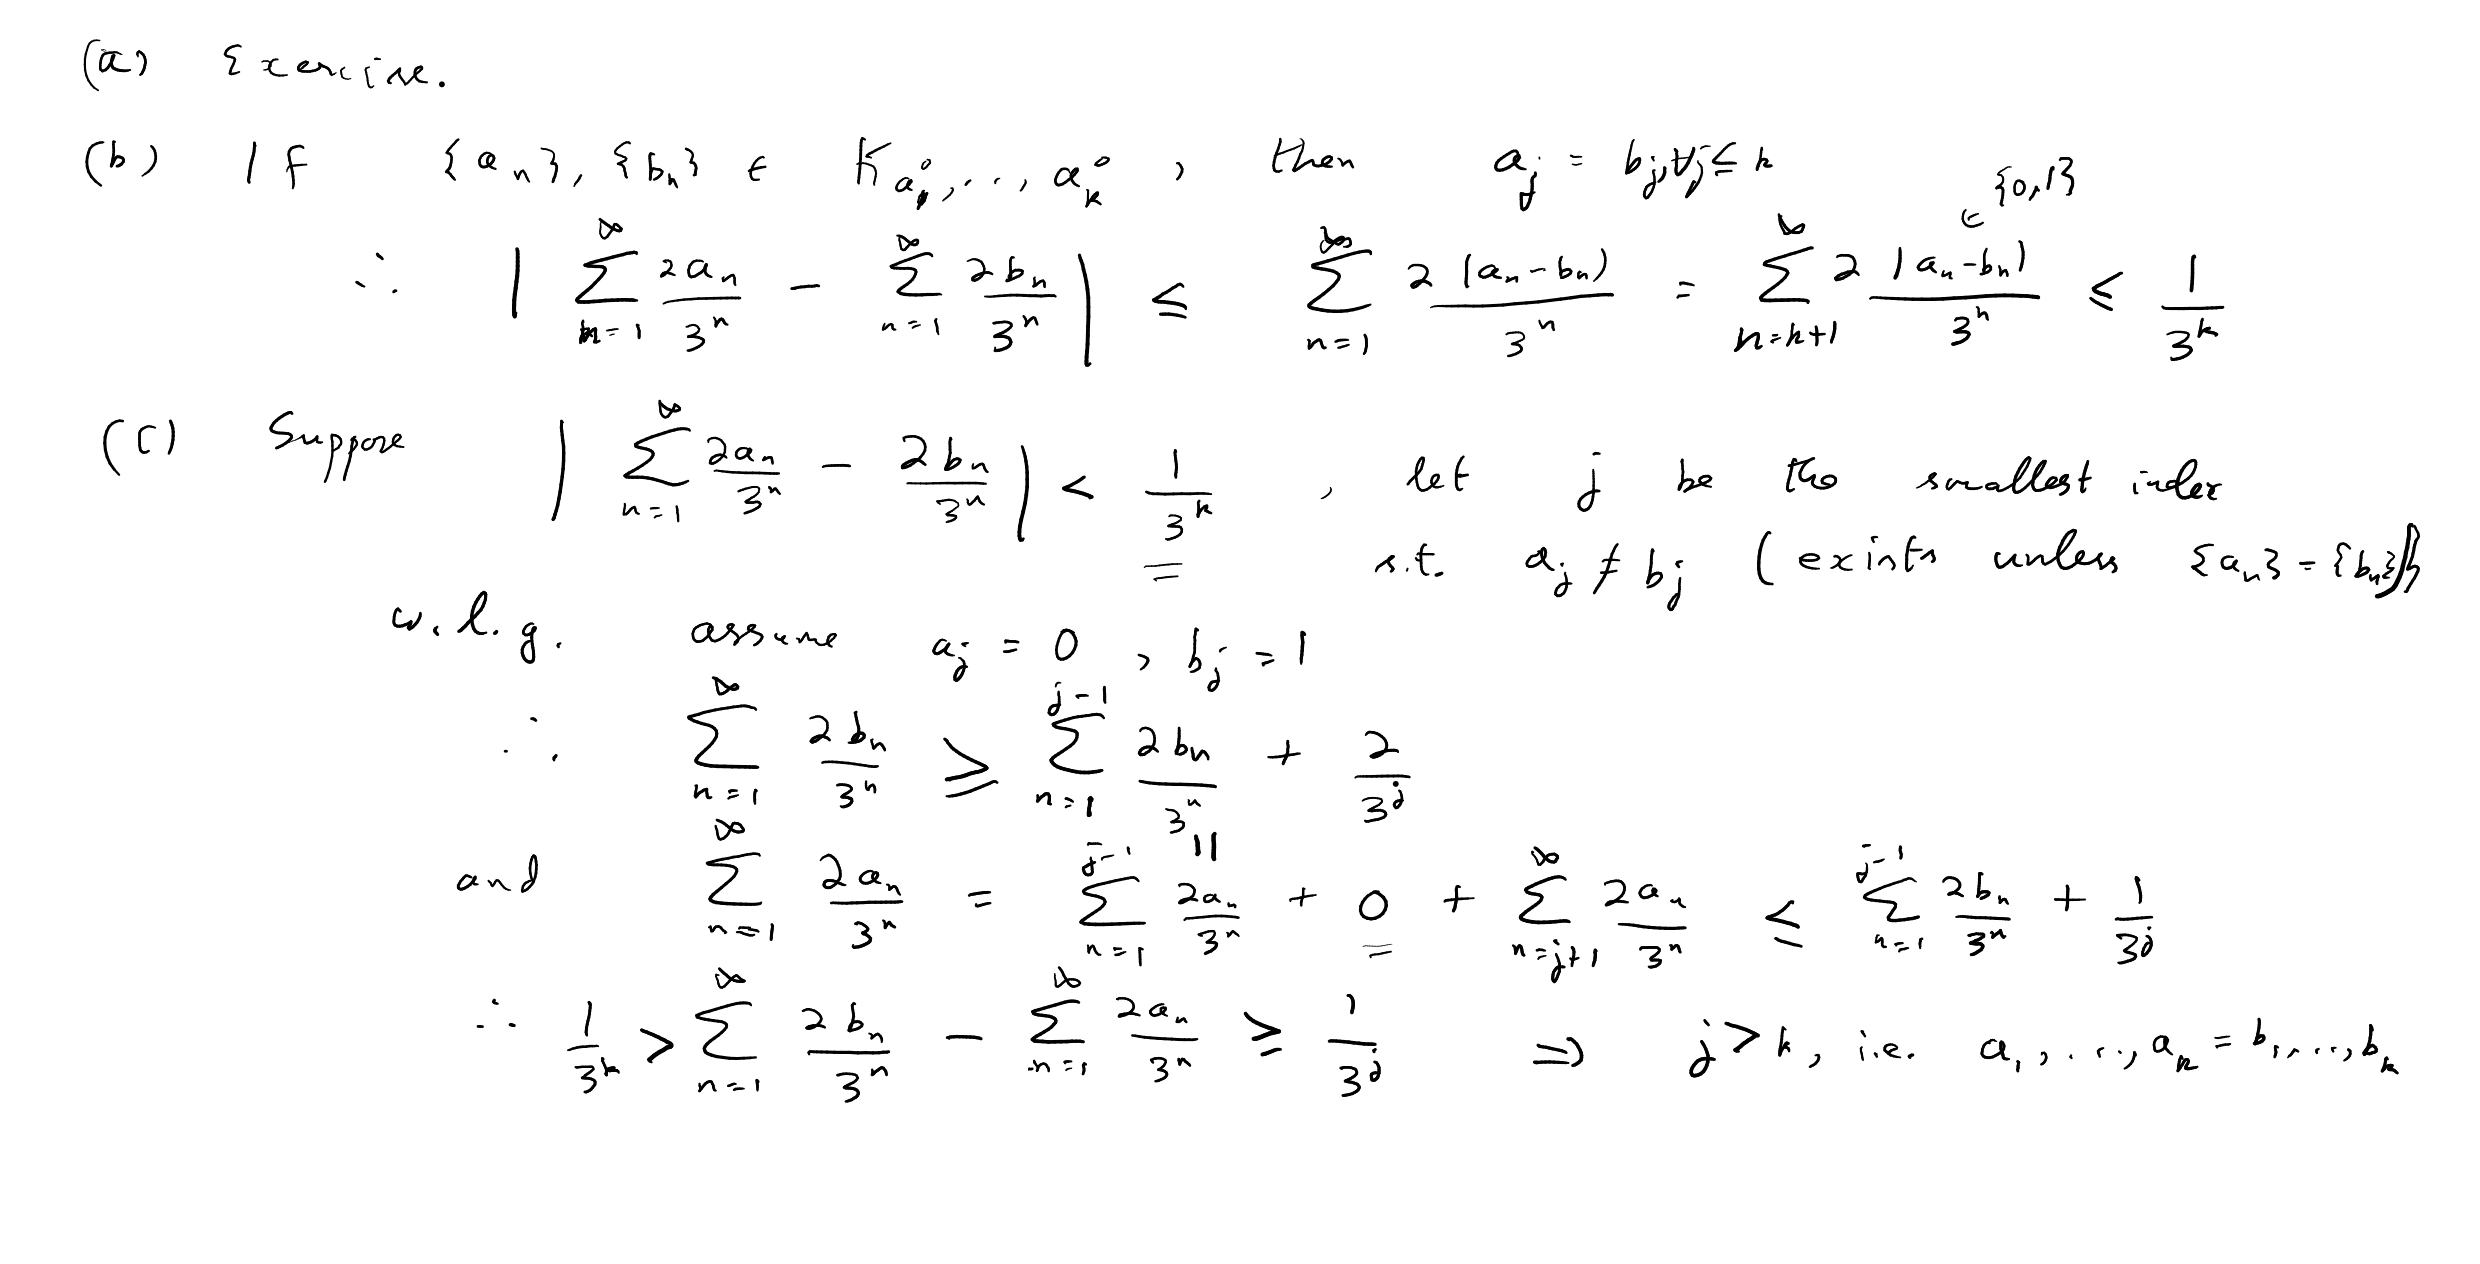 (a) Exercise.
(b) If {a_n}, {b_n} ∈ K_{a_1^o, ..., a_k^o}, then a_j = b_j, ∀j ≤ k
∴ | ∑_{n=1}^∞ 2a_n/3^n − ∑_{n=1}^∞ 2b_n/3^n | ≤ ∑_{n=1}^∞ 2 |a_n−b_n|/3^n = ∑_{n=k+1}^∞ 2 |a_n−b_n|/3^n ≤ 1/3^k
∈ {0,1}
(c) Suppose | ∑_{n=1}^∞ 2a_n/3^n − 2b_n/3^n | < 1/3^k, let j be the smallest index
s.t. a_j ≠ b_j (exists unless {a_n} = {b_n})
w.l.g. assume a_j = 0, b_j = 1
∴ ∑_{n=1}^∞ 2b_n/3^n ≥ ∑_{n=1}^{j−1} 2b_n/3^n + 2/3^j
||
and ∑_{n=1}^∞ 2a_n/3^n = ∑_{n=1}^{j−1} 2a_n/3^n + 0 + ∑_{n=j+1}^∞ 2a_n/3^n ≤ ∑_{n=1}^{j−1} 2b_n/3^n + 1/3^j
∴ 1/3^k > ∑_{n=1}^∞ 2b_n/3^n − ∑_{n=1}^∞ 2a_n/3^n ≥ 1/3^j ⇒ j > k, i.e. a_1, ..., a_k = b_1, ..., b_k